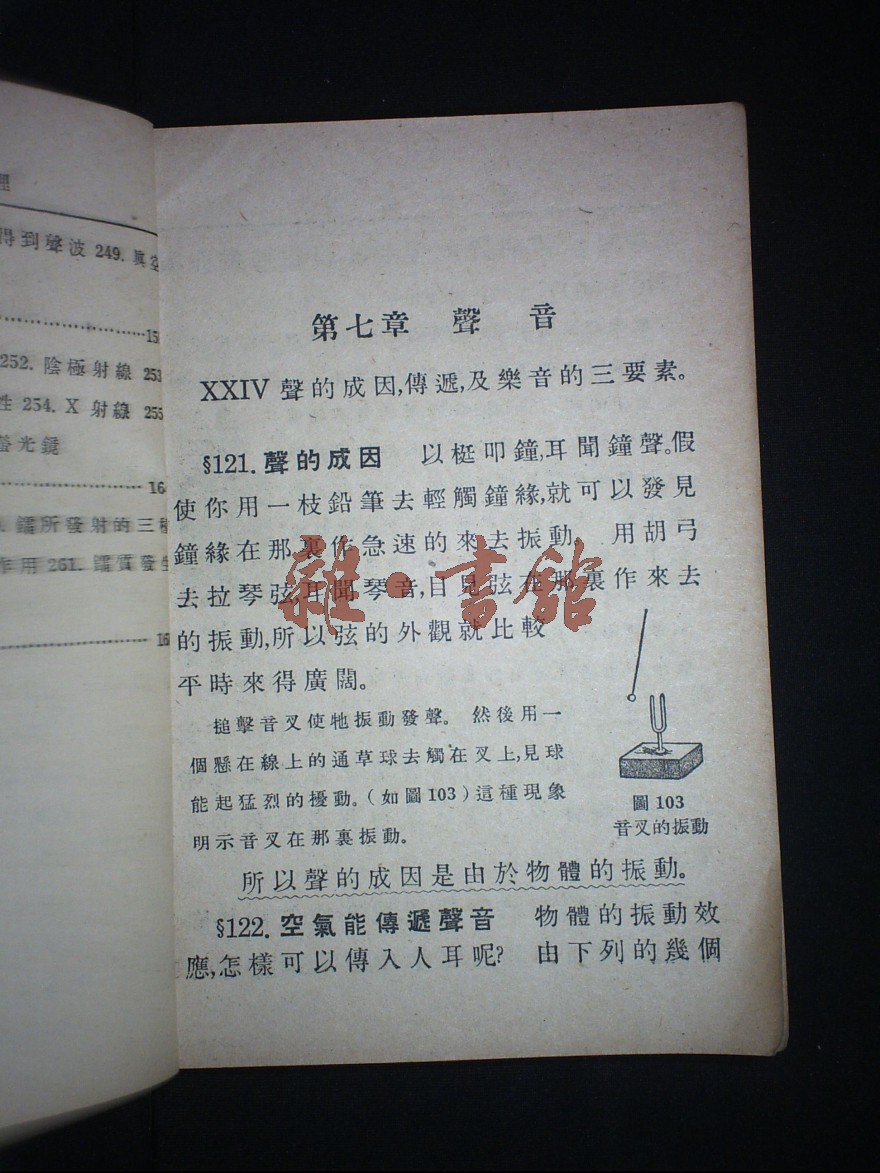 理
得到聲波 249. 眞空
15
252. 陰極射線 253
性 254. X 射線 255
螢光鏡
16
鐳所發射的三種
作用 261. 鐳質發生
16
第七章 聲音
XXIV 聲的成因,傳遞,及樂音的三要素。
§121. 聲的成因 以梃叩鐘,耳聞鐘聲。假
使你用一枝鉛筆去輕觸鐘緣,就可以發見
鐘緣在那裏作急速的來去振動 用胡弓
去拉琴弦,耳聞琴音,目見弦在那裏作來去
的振動,所以弦的外觀就比較
平時來得廣闊。
搥擊音叉使牠振動發聲。 然後用一
個懸在線上的通草球去觸在叉上,見球
能起猛烈的擾動。(如圖103)這種現象
明示音叉在那裏振動。
圖 103
音叉的振動
所以聲的成因是由於物體的振動。
§122. 空氣能傳遞聲音 物體的振動效
應,怎樣可以傳入人耳呢? 由下列的幾個
雜·書館